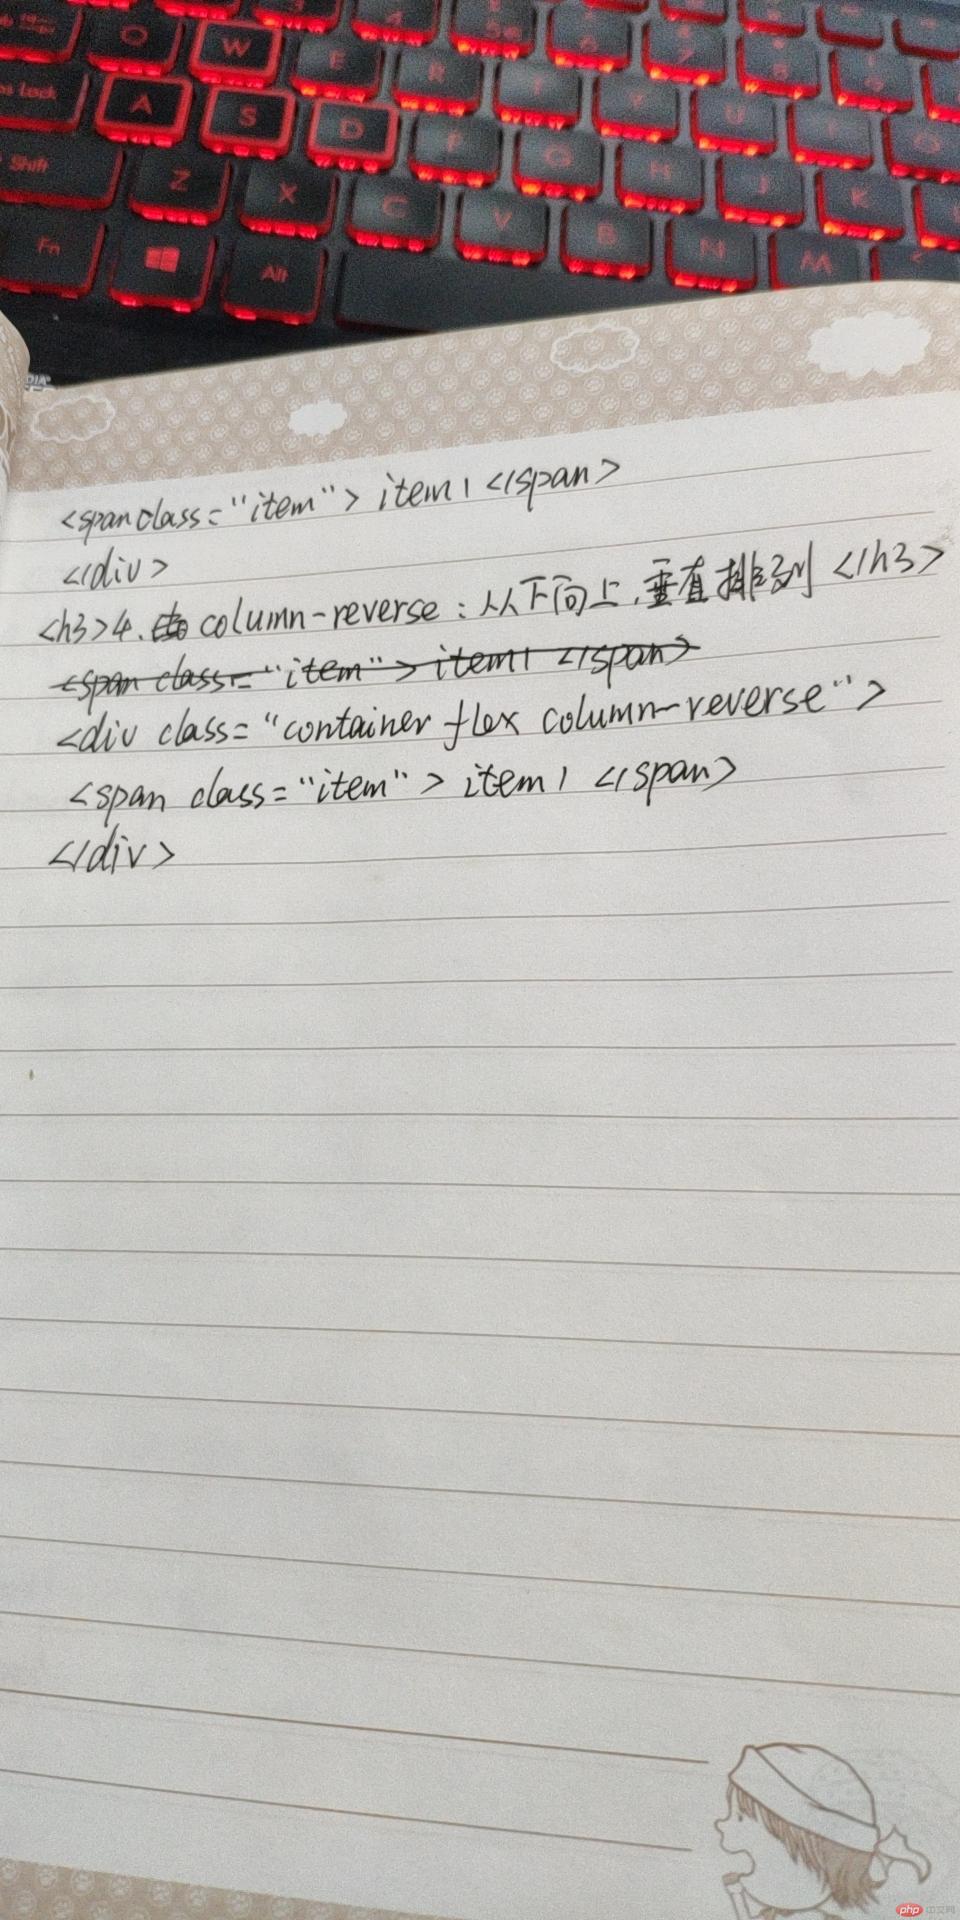 W
E
R
A
S
D
Shift
Z
X
C
V
B
N
M
K
Fn
Alt
<span class="item"> item1 </span>
</div>
<h3>4. column-reverse:从下向上,垂直排列 </h3>
<span class="item"> item1 </span>
<div class="container flex column-reverse">
<span class="item"> item1 </span>
</div>
php 中文网